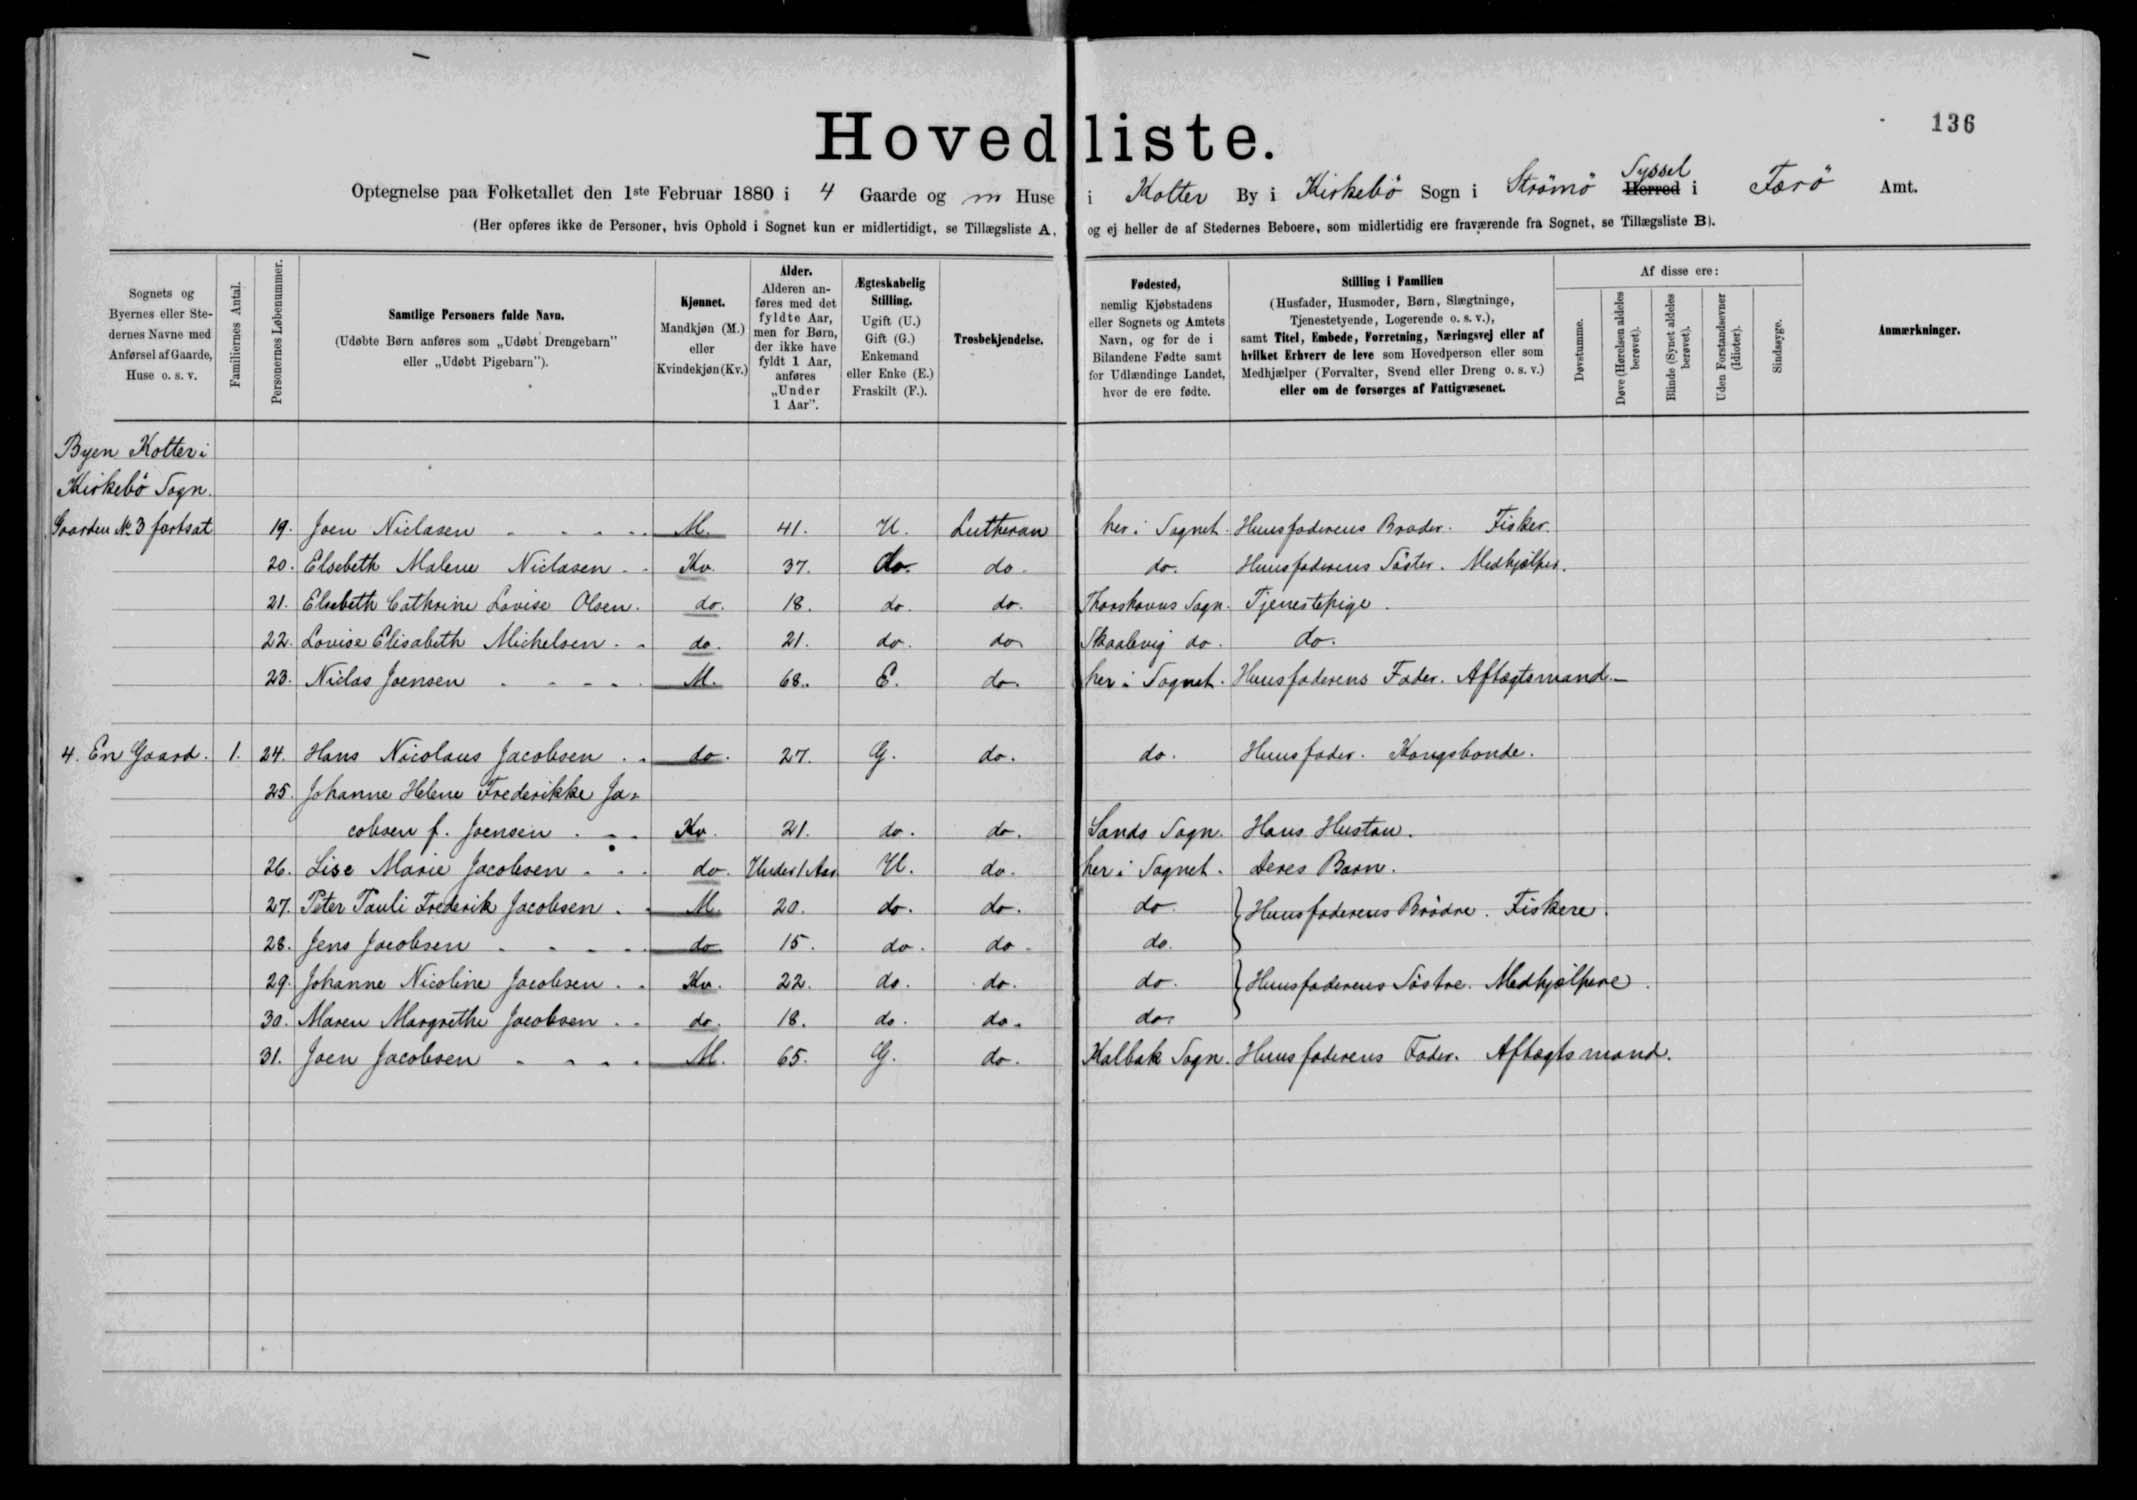 136
Hovedliste.
Optegnelse paa Folketallet den 1ste Februar 1880 i 4 Gaarde og Huse i Kolter By i Kirkebö Sogn i Strömö Herred Syssel i Færö Amt.
(Her opføres ikke de Personer, hvis Ophold i Sognet kun er midlertidigt, se Tillægsliste A, og ej heller de af Stedernes Beboere, som midlertidig ere fraværende fra Sognet, se Tillægsliste B).
Sognets og
Byernes eller Ste-
dernes Navne med
Anførsel af Gaarde,
Huse o. s. v.
Familiernes Antal.
Personernes Løbenummer.
Samtlige Personers fulde Navn.
(Udøbte Børn anføres som „Udøbt Drengebarn"
eller „Udøbt Pigebarn").
Kjønnet.
Mandkjøn (M.)
eller
Kvindekjøn (Kv.)
Alder.
Alderen an-
føres med det
fyldte Aar,
men for Børn,
der ikke have
fyldt 1 Aar,
anføres
„Under
1 Aar".
Ægteskabelig
Stilling.
Ugift (U.)
Gift (G.)
Enkemand
eller Enke (E.)
Fraskilt (F.).
Trosbekjendelse.
Fødested,
nemlig Kjøbstadens
eller Sognets og Amtets
Navn, og for de i
Bilandene Fødte samt
for Udlændinge Landet,
hvor de ere fødte.
Stilling i Familien
(Husfader, Husmoder, Børn, Slægtninge,
Tjenestetyende, Logerende o. s. v.),
samt Titel, Embede, Forretning, Næringsvej eller af
hvilket Erhverv de leve som Hovedperson eller som
Medhjælper (Forvalter, Svend eller Dreng o. s. v.)
eller om de forsørges af Fattigvæsenet.
Af disse ere:
Døvstumme.
Døve (Hørelsen aldeles
berøvet).
Blinde (Synet aldeles
berøvet).
Uden Forstandsevner
(Idioter).
Sindssyge.
Anmærkninger.
Byen Kolter i
Kirkebö Sogn.
Gaarden No 3 fortsat 19. Joen Niclasen M. 41. U. Lutheran her i Sognet. Huusfaderens Broder. Fisker.
20. Elsebeth Malene Niclasen Kv. 37. do. do. do. Huusfaderens Söster. Medhjælper.
21. Elsebeth Cathrine Lovise Olsen. do. 18. do. do. Thorshavns Sogn. Tjenestepige.
22. Lovise Elisabeth Michelsen. do. 21. do. do Skaalevig do. do.
23. Niclas Joensen M. 68. E. do. her i Sognet. Huusfaderens Fader. Aftægtsmand.
4. En Gaard. 1. 24. Hans Nicolaus Jacobsen do. 27. G. do. do. Huusfader. Kongsbonde.
25. Johanne Helene Frederikke Ja-
cobsen f. Joensen Kv. 21. do. do. Sands Sogn. Hans Hustru.
26. Lise Marie Jacobsen do. Under 1 Aar U. do. her i Sognet. Deres Barn.
27. Peter Pauli Frederik Jacobsen. M. 20. do. do. do. } Huusfaderens Brödre. Fiskere.
28. Jens Jacobsen do 15. do. do. do.
29. Johanne Nicoline Jacobsen Kv. 22. do. do. do. } Huusfaderens Söstre. Medhjælpere.
30. Maren Margrethe Jacobsen do. 18. do. do. do.
31. Joen Jacobsen M. 65. G. do. Kalbak Sogn. Huusfaderens Fader. Aftægtsmand.